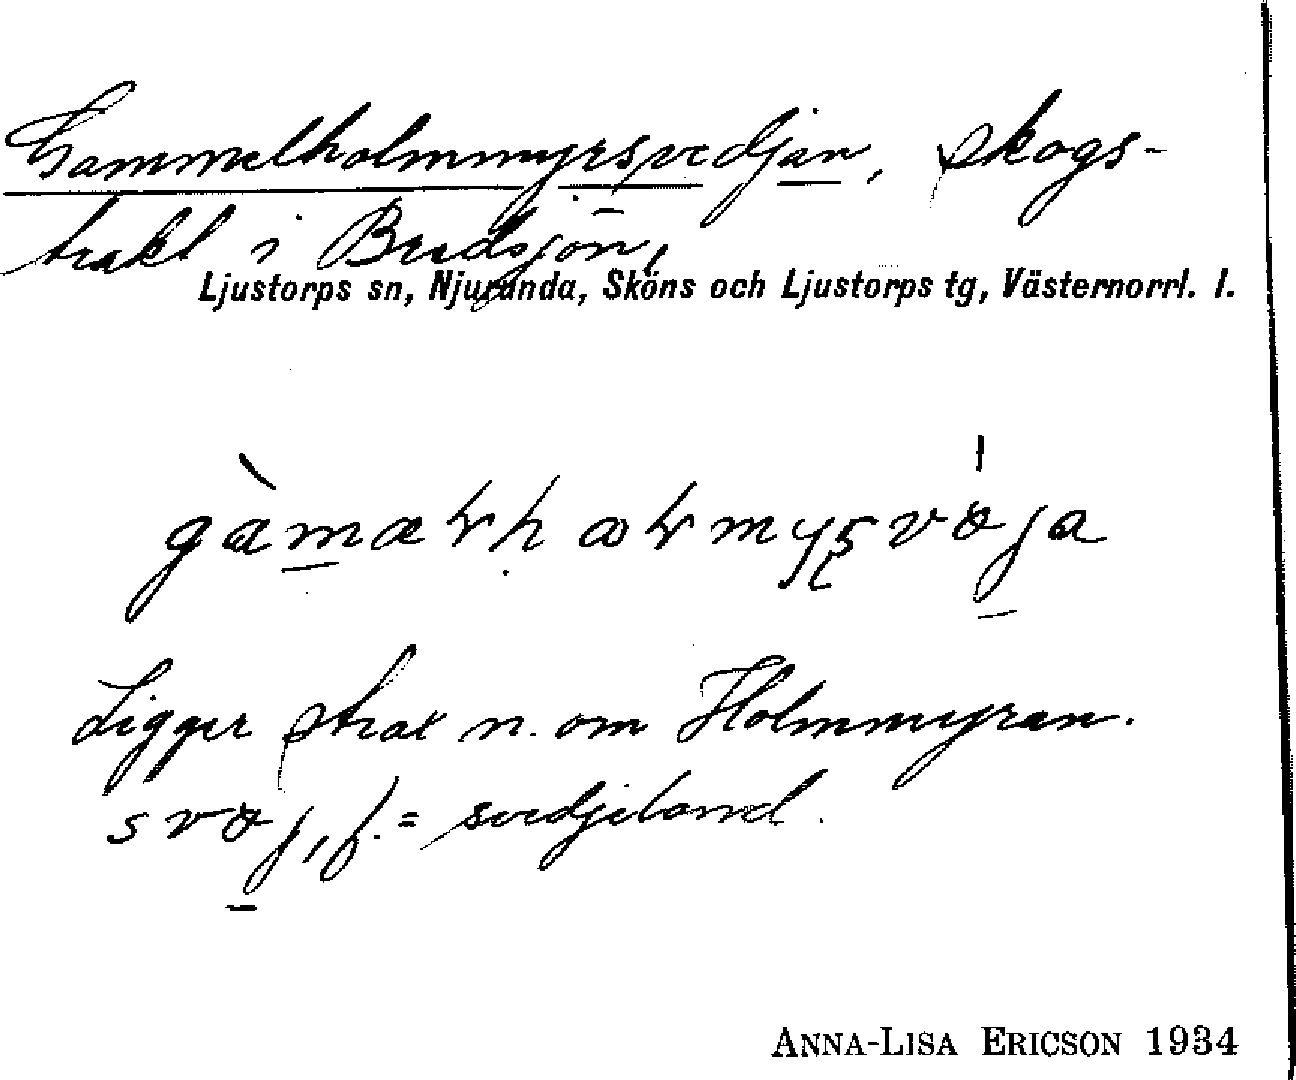 Gammelholmmyrsvedjan, skogs-
trakt i Bredsjön,
Ljustorps sn, Njurunda, Sköns och Ljustorps tg, Västernorrl. l.
Ligger strax n. om Holmmyren.
f. = svedjeland.
ANNA-LISA ERICSON 1934